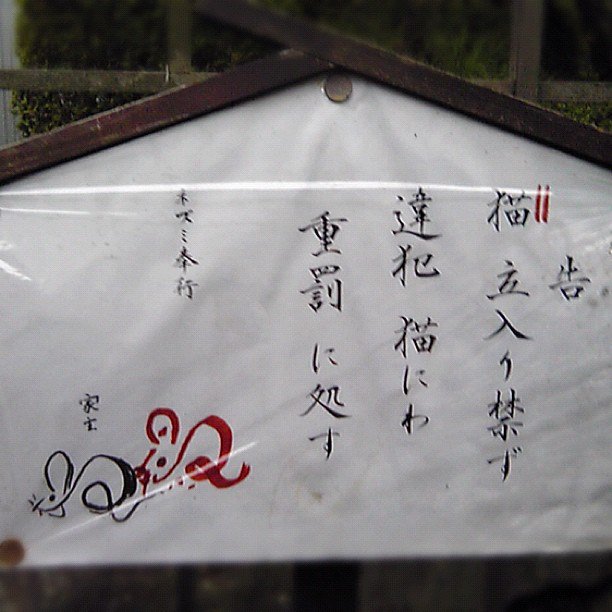 告
猫立入り禁ず
違犯猫にわ
重罰に処す
ネズミ奉行
家主